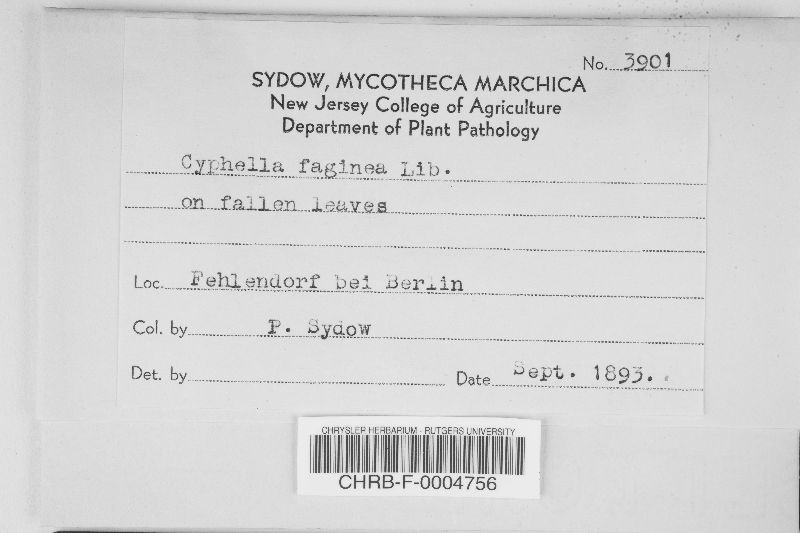 No. 3901
SYDOW, MYCOTHECA MARCHICA
New Jersey College of Agriculture
Department of Plant Pathology
Cyphella faginea Lib.
on fallen leaves
Loc. Fehlendorf bei Berlin
Col. by P. Sydow
Det. by Date Sept. 1893.
CHRYSLER HERBARIUM - RUTGERS UNIVERSITY
CHRB-F-0004756